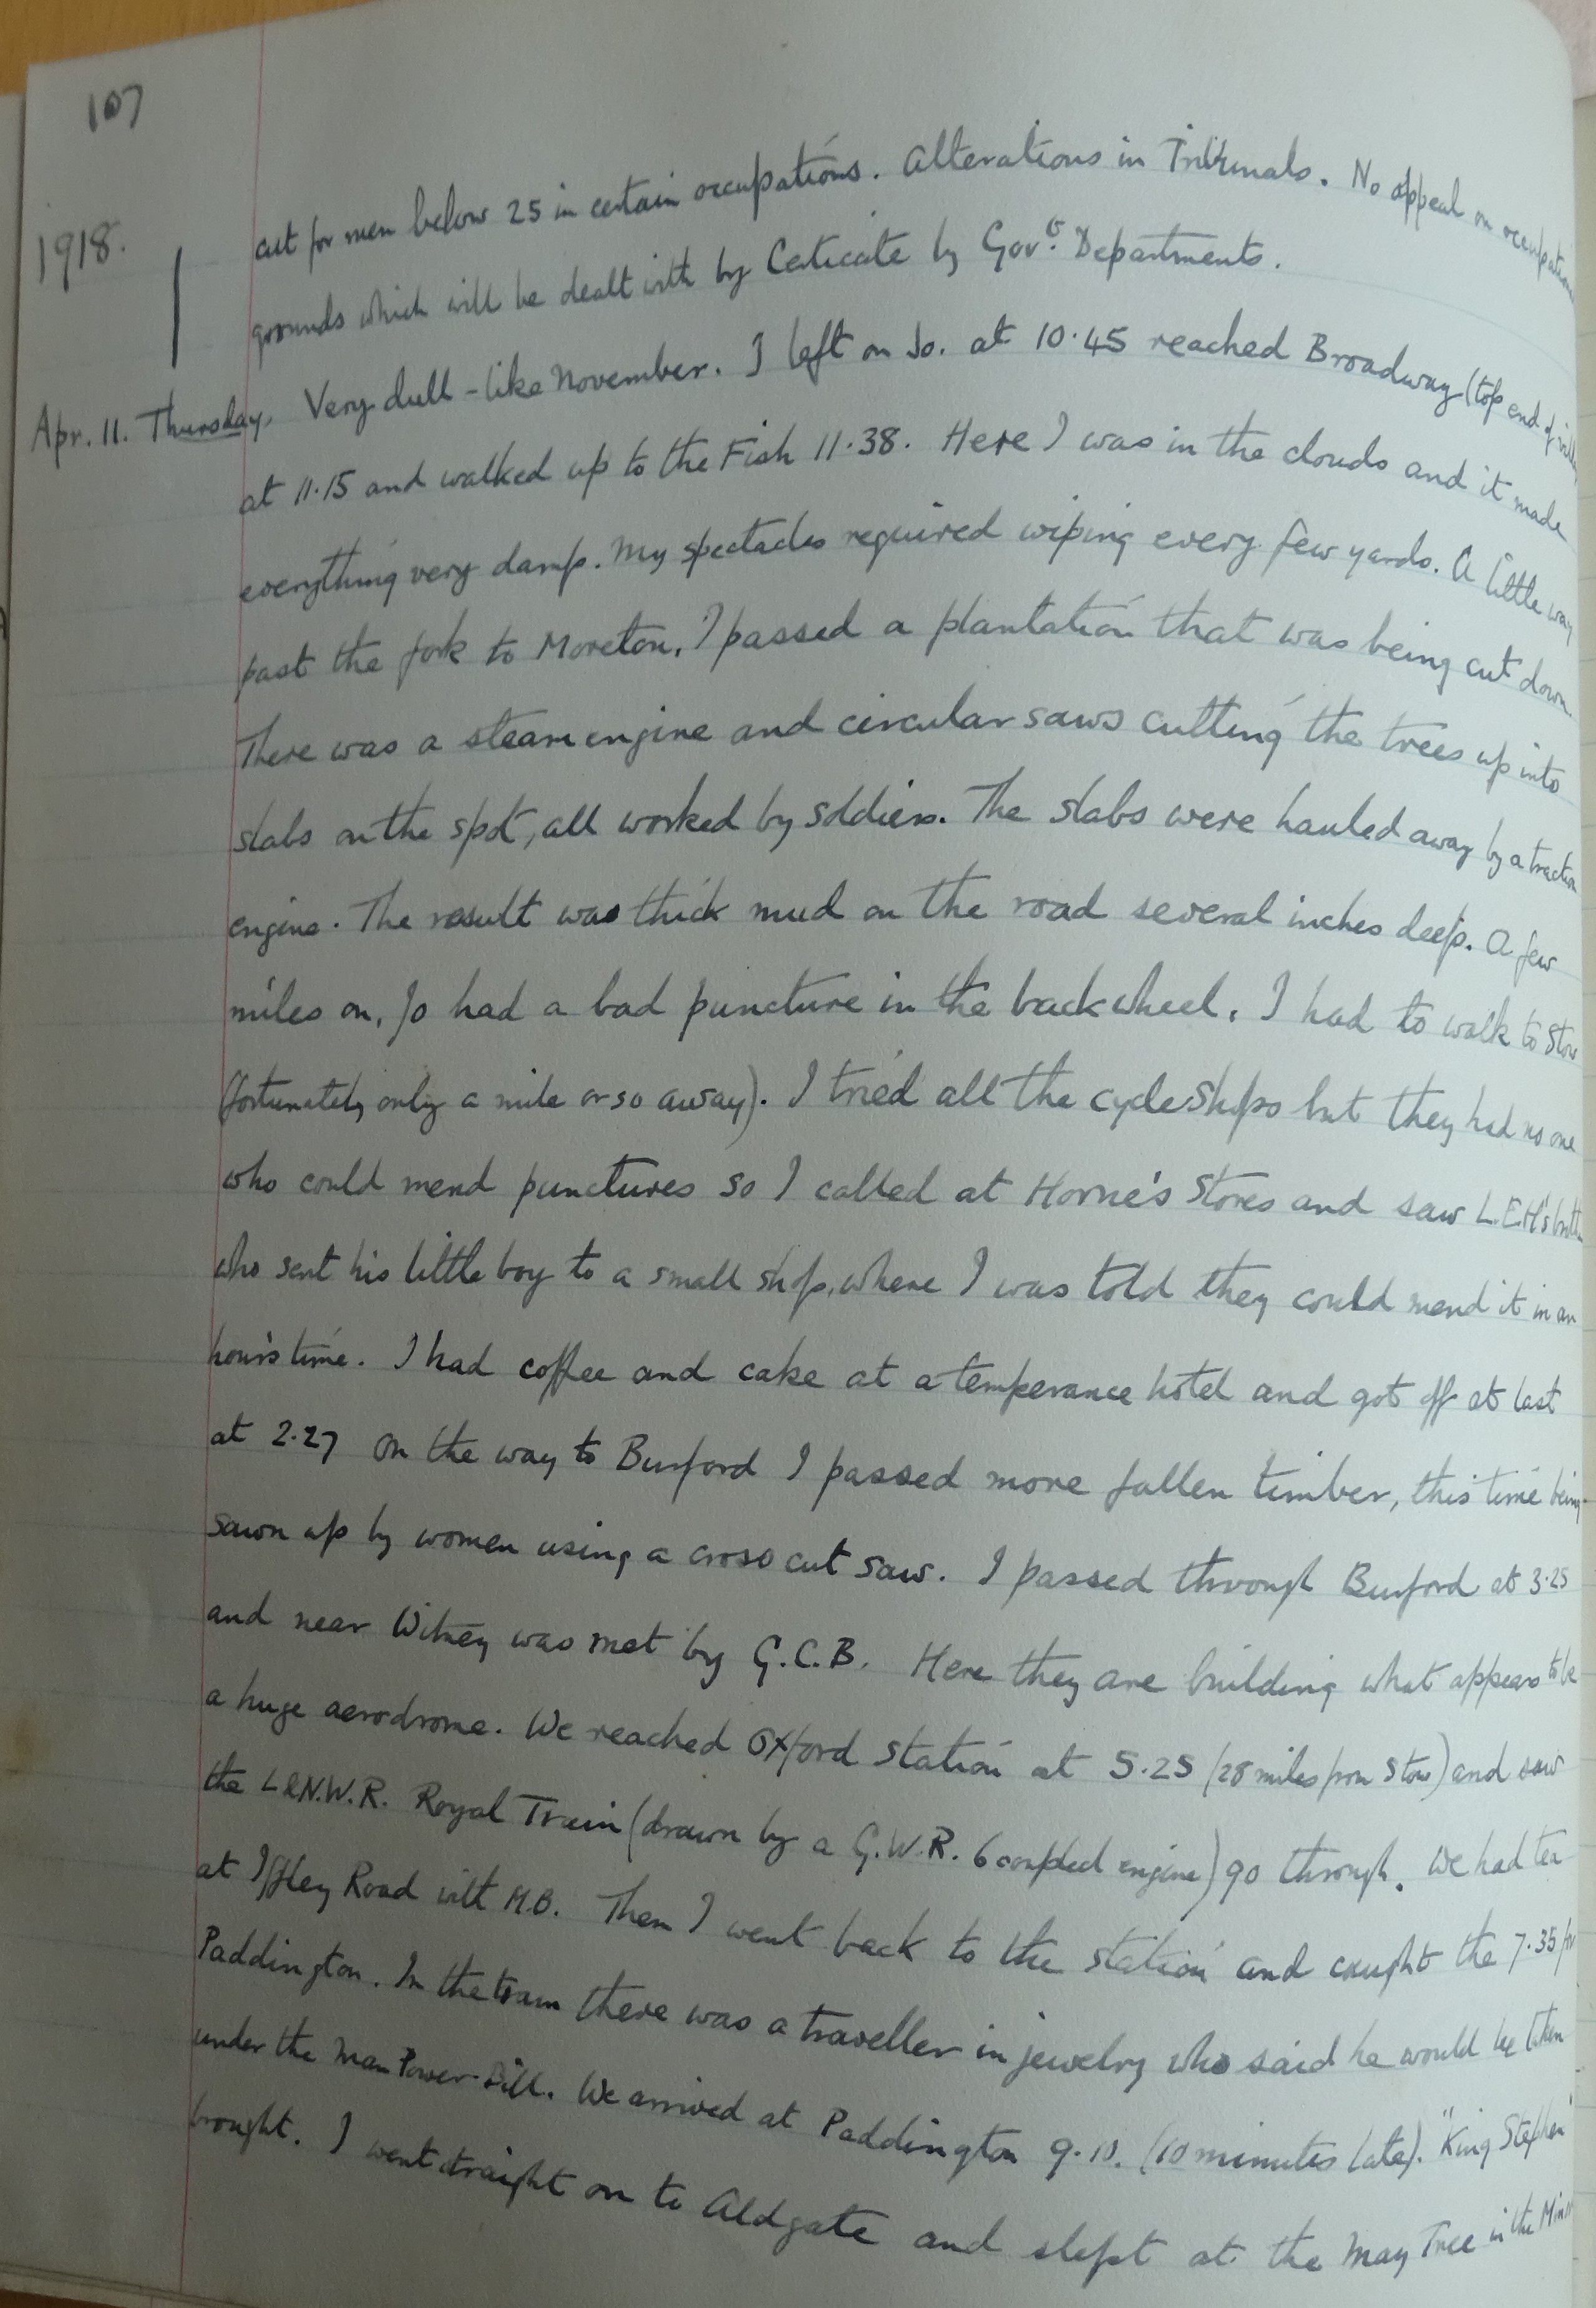 107
1918.
cut for men below 25 in certain occupations. Alterations in Tribunals. No appeal on occupation
grounds which will be dealt with by Certicate by Govt. Departments.
Apr. 11. Thursday. Very dull - like November. I left on Jo. at 10.45 reached Broadway (top end of
at 11.15 and walked up to the Fish 11.38. Here I was in the clouds and it made
everything very damp. My spectacles required wiping every few yards. A little way
past the fork to Moreton, I passed a plantation that was being cut down.
There was a steam engine and circular saws cutting the trees up into
slabs on the spot, all worked by soldiers. The slabs were hauled away by a traction
engine. The result was thick mud on the road several inches deep. A few
miles on, Jo had a bad puncture in the back wheel. I had to walk to Stow
(fortunately only a mile or so away). I tried all the cycle shops but they had no one
who could mend punctures so I called at Horne's Stores and saw L.E.H's
who sent his little boy to a small shop, where I was told they could mend it in an
hour's time. I had coffee and cake at a temperance hotel and got off at last
at 2.27 On the way to Burford I passed more fallen timber, this time being
sawn up by women using a cross cut saw. I passed through Burford at 3.25
and near Witney was met by G.C.B. Here they are building what appears to be
a huge aerodrome. We reached Oxford Station at 5.25 (28 miles from Stow) and saw
the L&N.W.R. Royal Train (drawn by a G.W.R. 6 coupled engine) go through. We had tea
at Iffley Road with M.B. Then I went back to the station and caught the 7.35 for
Paddington. In the train there was a traveller in jewelry who said he would be taken
under the Man Power Bill. We arrived at Paddington 9.10. (10 minutes late). "King Stephen"
brought. I went straight on to Aldgate and slept at the May Tree in the